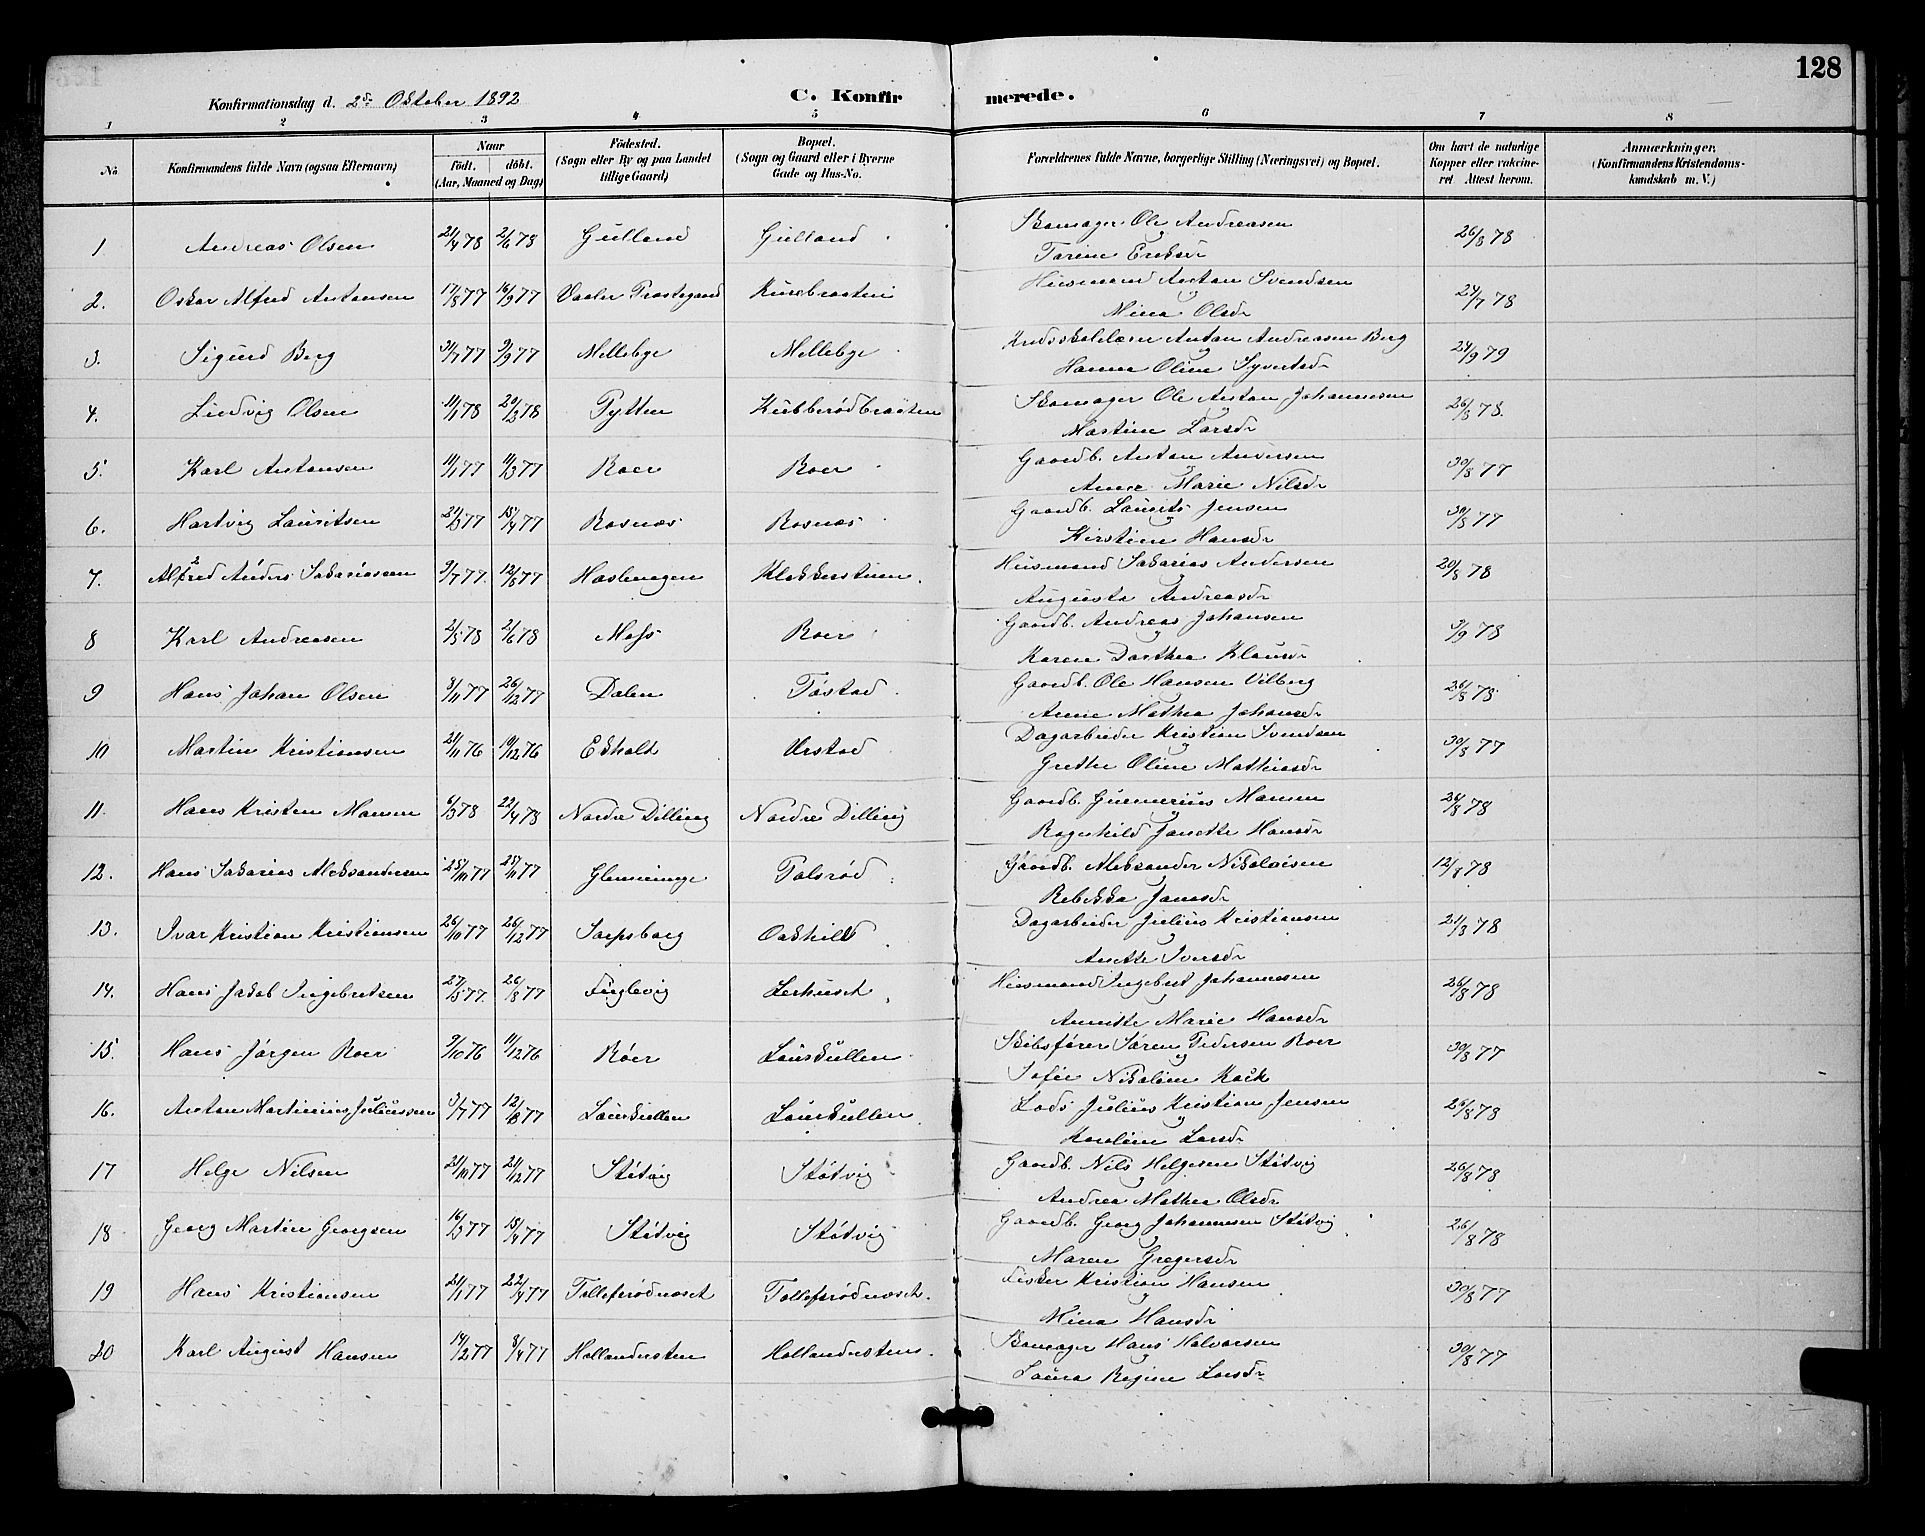 128
Konfirmationsdag d. 2den Oktober 1892 C. Konfirmerede.
1 2 3 4 5 6 7 8
No Konfirmandens fulde Navn (ogsaa Efternavn) Naar födt. döbt. (Aar, Maaned og Dag) Födested. (Sogn eller By og paa Landet tillige Gaard) Bopæl. (Sogn og Gaard eller i Byerne Gade og Hus-No. Forældrenes fulde Navne, borgerlige Stilling (Næringsvei) og Bopæl. Om havt de naturlige Kopper eller vakcineret Attest herom. Anmærkninger. (Konfirmandens Kristendomskundskab m. V.)
1 Andreas Olsen 21/4 78 2/6 78 Gulland Gulland Skomager Ole Andreasen 26/8 78
Torine Eriksdr
2. Oskar Alfred Antonsen 17/8 77 16/9 77 Vaaler Prestegaard Kurebraaten Husmand Anton Svendsen 24/7 78
Mina Olsdr
3. Sigurd Berg 31/7 77 9/9 77 Mellebye Mellebye Kredsskolelærer Anton Andreasen Berg 24/9 79
Hanna Oline Syvertsdr
4. Ludvig Olsen 11/1 78 20/3 78 Pytten Kubberødbraaten Skomager Ole Anton Johannesen 26/8 78.
Mastine Larsdr
5. Karl Antonsen 11/1 77 11/3 77 Roer Roer Gaardb. Anton Andersen 30/8 77
Anne Marie Nilsdr
6. Hartvig Lauritsen 21/3 77 15/4 77 Rosnæs Rosnæs Gaardb. Laurits Jensen 30/8 77
Kirstine Hansdr
7. Alfred Anders Sakariasen 3/7 77. 12/8 77 Haslenagen Klokkerstuen. Husmand Sakarias Andersen 20/8 78
Augusta Andreasdr
8 Karl Andreasen 2/5 78 2/6 78 Moss Roer Gaardb. Andreas Johansen 9/9 78
Karen Dorthea Klausdr
9 Hans Johan Olsen 8/11 77 26/12 77 Dalen Tøstad Gaardb. Ole Hansen Vilberg 26/8 78
Anne Mathea Johansdr
10 Martin Kristiansen 21/11 76 10/12 76 Ekholt Urstad Dagarbeider Kristian Svendsen 30/8 77
Grethe Oline Mathiasdr
11. Hans Kristen Mansen 6/3 78 22/4 78 Nordre Dilling Nordre Dilling Gaardb. Gunnerius Mansen 26/8 78
Ragnhild Janette Hansdr
12. Hans Sakarias Aleksandersen 25/10 77 25/11 77 Glenninge Tolsrød Gaardb. Aleksander Nikolaisen 12/8 78
Rebekka Jansdr
13. Ivar Kristian Kristiansen 26/10 77 26/12 77 Sarpsborg Oakhill Dagarbeider Julius Kristiansen 21/3 78
Anette Iversdr
14. Hans Jakob Ingebretsen 27/5 77. 26/8 77 Fuglevig Lerhuset Husmand Ingebret Johannesen 26/8 78
Annette Marie Hansdr
15. Hans Jørgen Roer 9/10 76 11/12 76 Røer Laurkullen Skibsfører Søren Pedersen Roer 30/8 77
Sofie Nikoline Kock
16. Anton Martinius Juliussen 3/7 77 12/8 77 Laurkullen Laurkullen. Lods Julius Kristian Jensen 26/8 78
Karoline Larsdr
17 Helge Nilsen 21/10 77 21/12 77 Støtvig Støtvig Gaardb. Nils Helgesen Støtvig 26/8 78
Andrea Mathea Olsdr
18 Georg Martin Georgsen 16/3 77 15/4 77 Støtvig Støtvig Gaardb. Georg Johannesen Støtvig 26/8 78
Maren Gregersdr
19 Hans Kristiansen 21/1 77 22/4 77 Tollefsrødnæset Tollefsrødnæset. Fisker Kristian Hansen 30/8 77
Mina Hansdr
20 Karl August Hansen 14/2 77 8/4 77 Hollandersten Hollandersten. Hans Halvorsen 30/8 77
Laura Regine Larsdr